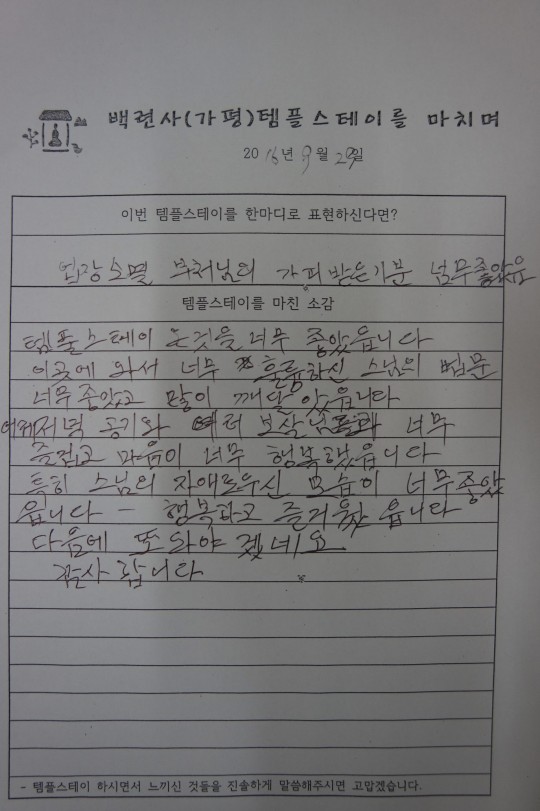 백련사(가평)템플스테이를 마치며
2016년 9월 29일
이번 템플스테이를 한마디로 표현하신다면?
업장소멸 부처님의 가피받은기분 넘무좋았유
템플스테이를 마친 소감
템플스테이 온것을 너무 좋았읍니다
이곳에 와서 너무 훌륭하신 스님의 법문
너무좋았고 많이 깨달았읍니다
어제저녁 공기와 여러 보살님들과 너무
즐겁고 마음이 너무 행복했읍니다
특히 스님의 자애로우신 모습이 너무좋았
읍니다 - 행복하고 즐거웠읍니다
다음에 또 와야 겠네요
감사합니다
- 템플스테이 하시면서 느끼신 것들을 진솔하게 말씀해주시면 고맙겠습니다.